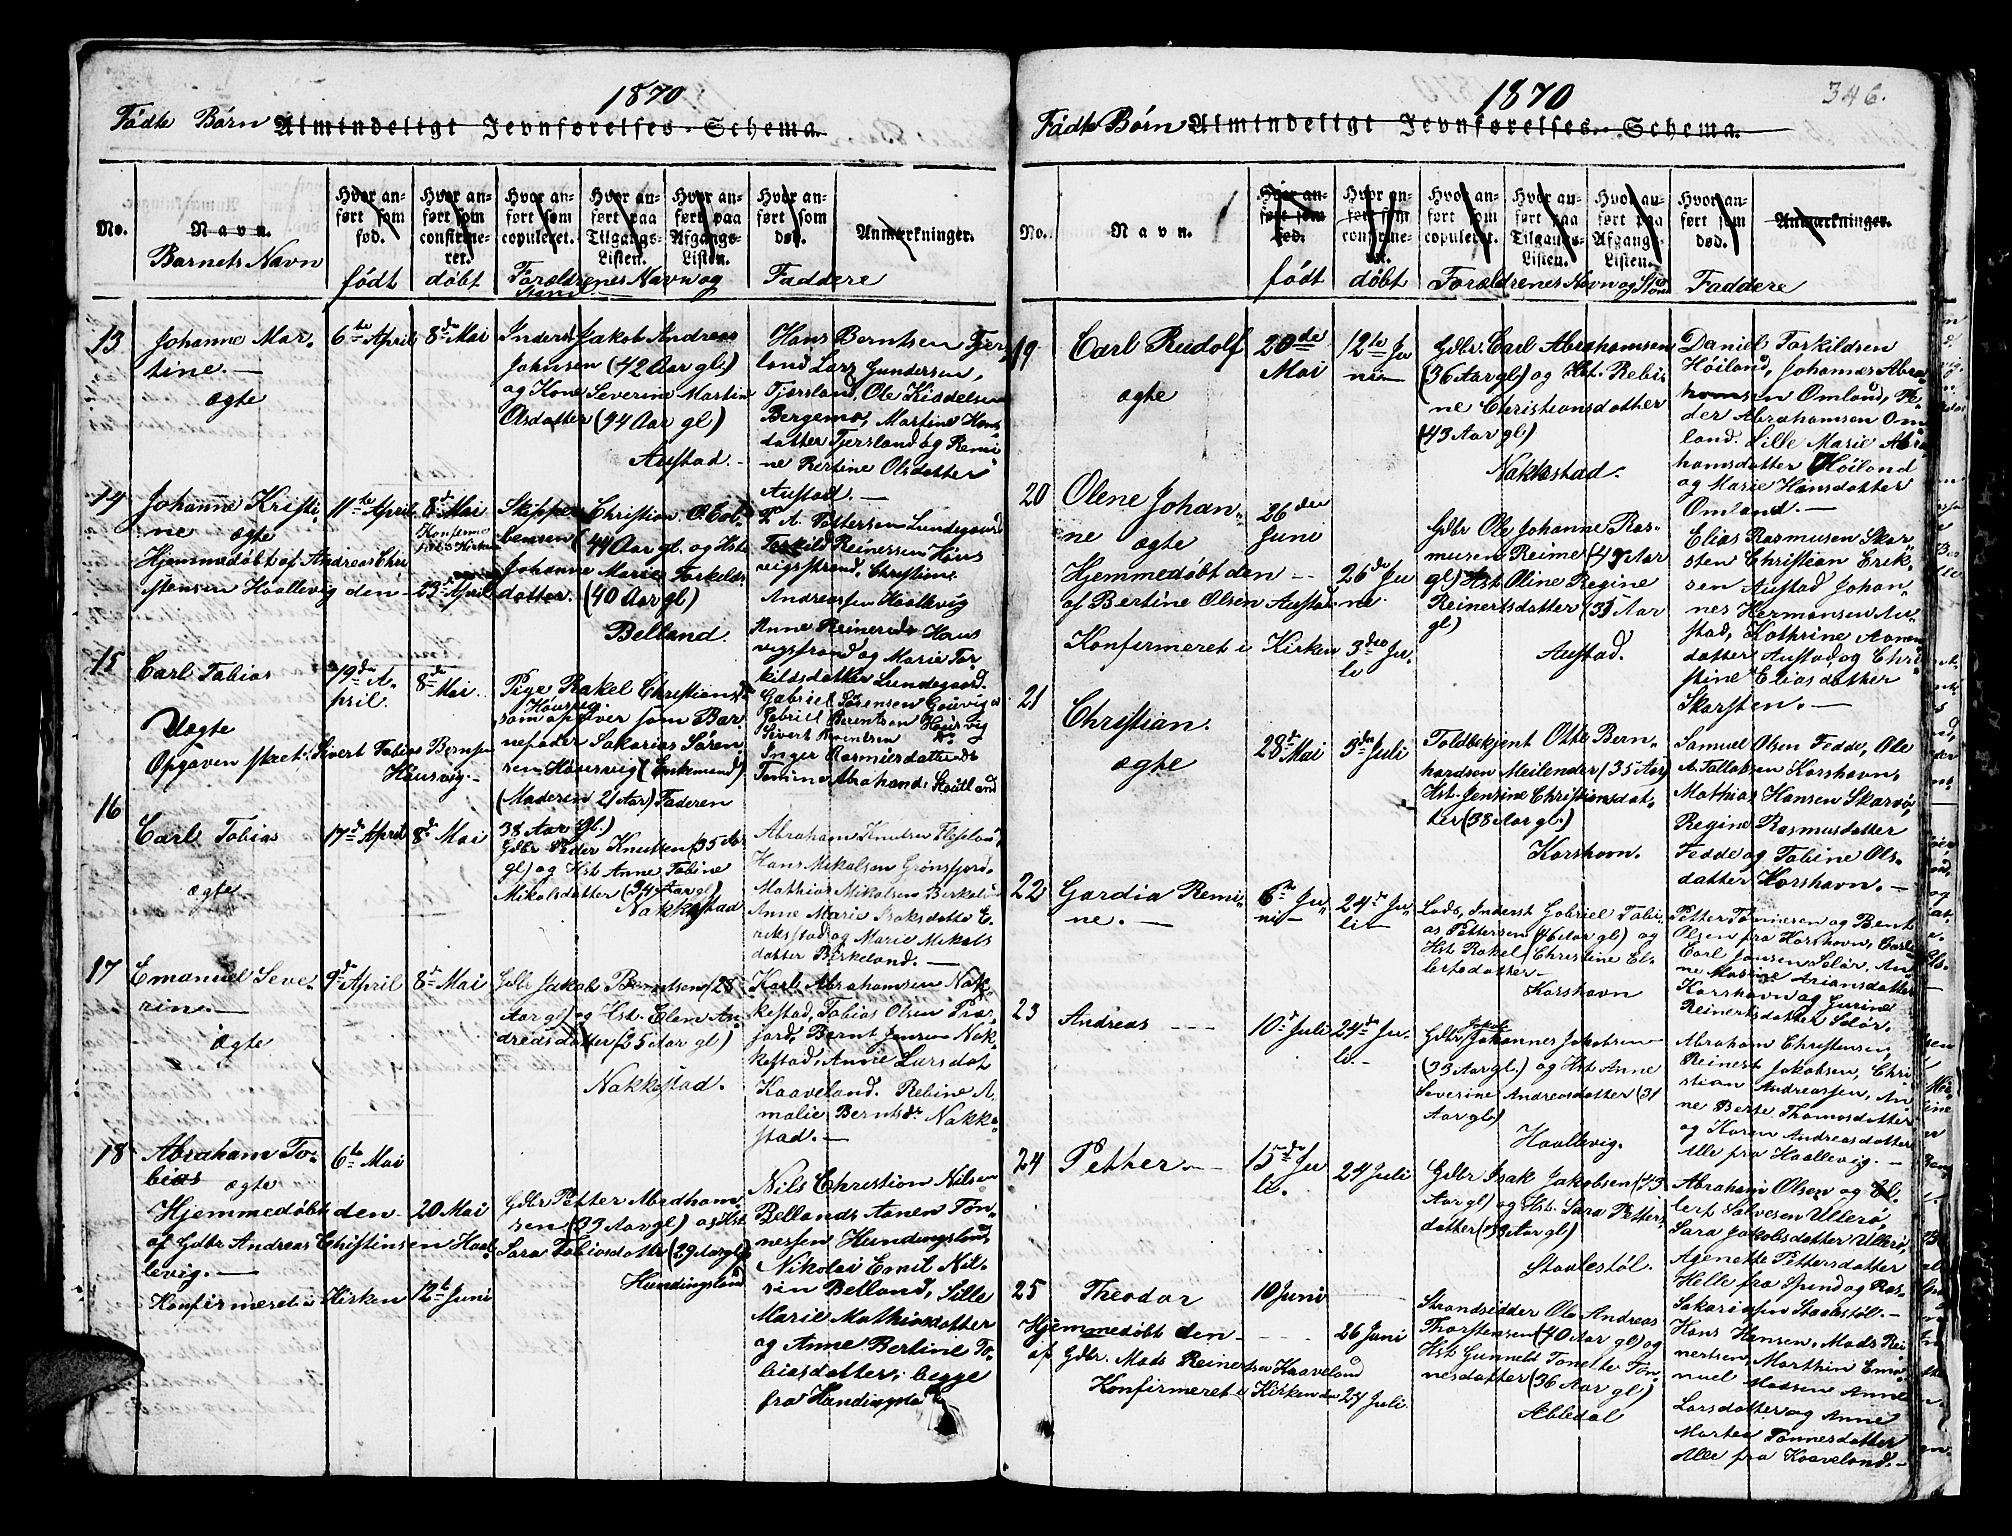 1870
Fødte Børn Almindeligt Jevnførelses-Schema.
No.
Navn.
Barnets Navn
Hvor anført som fød.
født
Hvor anført som confirmeret.
døbt
Hvor anført som copuleret.
Hvor anført paa Tilgangs-Listen.
Hvor anført paa Afgangs-Listen.
Forældrenes Navn og Stand
Hvor anført som død.
Anmærkninger.
Faddere
13
Johanne Mar-
tine.—
ægte
6te April
8de Mai
Inderst Jakob Andreas
Johnsen (42 Aar gl)
og Kone Severine Martin
Olsdatter (44 Aar gl)
Austad.—
Hans Berntsen Tjers-
land Lars Gundersen,
Tjersland, Ole Kiddelsen
Bergemo, Martine Hans-
datter Tjersland og Remi-
ne Bertine Olsdatter
Austad.—
14
Johanne Kristi-
ne ægte
Hjemmedøbt af Andreas Chri-
stensen Haallevig den
11te April
8de Mai
23de April
Skipper Christian O. Col-
bensen (41 Aar gl. og Hst
Johanne Marie Torkelds-
datter. (40 Aar gl)
Belland
T. A. Pettersen Lundegaard
Torkild Reinersen Haus-
vigstrand, Christine
Andreassen Haallevig
Anne Reinersdr Haus-
vigstrand og Marie Tor-
kildsdatter Lundegaard.
15
Carl Tobias
Uægte
Opgaven skret: Sivert Tobias Bernsen
Hausvig.—
19de A-
pril.
8de Mai.
Pige Rakel Christiansd
Hausvig.
som opgiver som Bar-
nefader Sakarias Søren-
sen Hausvig (Enkemand)
(Moderen 21 Aar) Faderen
38 Aar gl.)
Gabriel Sørensen Gouvig
Gabriel Berentsen Hausvig
Sivert Berentsen do
Inger Rasmusdatter do
Tomine Abrahamd. Skoutland
16
Carl Tobias
ægte
17de April
8de Mai
Gdbr Peder Knutsen (35 Aar
gl) og Hst Anne Tobine
Mikalsdatter (34 Aar gl)
Nakkestad
Abraham Knudsen Fleseland,
Hans Mikalsen Grønsfjord,
Mathias Mikalsen Birkeland
Anne Marie Isaksdatter E-
rikstad og Marie Mikals-
datter Birkeland.—
17
Emanuel Seve-
rin.—
ægte
9de April
8de Mai
Gdbr Jakob Berntsen (28
Aar gl) og Hst. Elen An-
dreasdatter (25 Aar gl)
Nakkestad.
Karl Abrahamsen Nak-
kestad, Tobias Olsen Træ-
ford, Bernt Jensen Nak-
kestad, Anne Larsdat
Kaaveland. Rebine A-
malie Berntsdr Nakke-
stad.—
18
Abraham To-
bias ægte
Hjemmedøbt den
af Gdbr Andreas Christinsen Haal-
levig.—
Konfirmeret i Kirken
6te Mai
20 Mai
12te Juni
Gdbr Petter Abraham-
sen. (33 Aar gl) og Hst
Sara Tobiasdatter (29 Aar gl)
Hundingsland
Nils Christian Nilsen
Bellands Aanen Tøn-
nessen Hundingsland,
Nikolai Emil Nil-
sen Belland, Lille
Marie Mathiasdatter
og Anne Bertine To-
biasdatter, begge
fra Hundingsland
1870
346.
Fødte Børn Almindeligt Jevnførelses-Schema.
No.
Navn.
Hvor anført som fød.
født
Hvor anført som confirmeret.
døbt
Hvor anført som copuleret.
Hvor anført paa Tilgangs-Listen.
Hvor anført paa Afgangs-Listen.
Forældrenes Navn og Stand
Hvor anført som død.
Anmærkninger.
Faddere
19
Carl Rudolf
ægte
20de
Mai
12te Ju-
ni
Gdbr. Carl Abrahamsen
(36 Aar gl) og Hst. Rebi-
ne Christiansdatter
(43 Aar gl)
Nakkestad.
Daniel Torkildsen
Høiland, Johannes Abra-
hamsen Omland, Pe-
der Abrahamsen Om-
land. Lille Marie Abra-
hamsdatter Høiland
og Marie Hansdatter
Omland.—
20
Olene Johan-
ne ægte
Hjemmedøbt den
af Bertine Olsen Austad
Konfermeret i Kirken
26de
Juni
26de Ju-
ni
3die Ju-
li
Gdbr Ole Johanne Ras-
musen Reime (43 Aar
gl) Hst Oline Regine
Reinertsdatter (35 Aar
gl)
Austad.
Elias Rasmusen Skar-
sten Christian Erik-
sen Austad Johan-
nes Hermansen Au-
stad, Kathrine Aanen-
datter Austad og Chri-
stine Eliasdatter
Skarsten.—
21
Christian.
ægte
28de Mai
3die Juli
Toldbetjent Otto Bern-
hardsen Meilender (35 Aar)
Hst. Jensine Christiansdat-
ter (38 Aar gl.)
Korshavn.
Samuel Olsen Fedde, Ole
A. Tallaksen Korshavn,
Mathias Hansen Skarvø,
Regine Rasmusdatter
Fedde og Tobine Ols-
datter Korshavn.—
22
Gardia Remi-
ne.—
6te Ju-
ni
24de Ju-
li
Lods, Inderst Gabriel Tobi-
as Pettersen (46 Aar gl) og
Hst Rakel Christine El-
lefsdatter
Korshavn
Petter Tønnesen og Bent
Olsen fra Korshavn,
Carl Jansen Selør, An-
ne Ariansdatter
Korshavn og Gurine
Reinertsdatter Selør.
23
Andreas
10de Juli
24de Ju-
li.
Gdbr Johannes Jakobsen
(33 Aar gl.) og Hst. Anne
Severine Andreasdatter (31
Aar gl)
Haallevig.
Abraham Christensen,
Reinert Jakobsen, Chri-
stian Andreassen, An-
ne Berte Thomasdatter
og Karen Andreasdatter
Alle fra Haallevig.—
24
Petter
15de Ju-
li.
24 Juli
Gdbr Isak Jakobsen (43
Aar gl) og Hst. Sara Petters-
datter (33 Aar gl)
Staalestøl.
Abraham Olsen og El-
lert Salvesen Ullerø,
Sara Jakobsdatter Ullerø,
Agenette Pettersdatter
Helle fra Spind og Ras-
Sakariasen Staalestøl.—
25
Theodor
Hjemmedøbt den
af Gdbr. Mads Reinertsen Kaaveland
Konfirmeret i Kirken den
10 Juni
26 Juni
24 Juli
Strandsidder Ole Andreas
Thorstensen (40 Aar gl) og
Hst Gunneld Tonette Tøn-
nesdatter (36 Aar gl)
Abledal
Hans Hansen, Mads Rei-
nertsen, Marthin Ema-
nuel Madsen Anne
Larsdatter og Anne
Martea Tønnesdatter
Alle fra Kaaveland.—